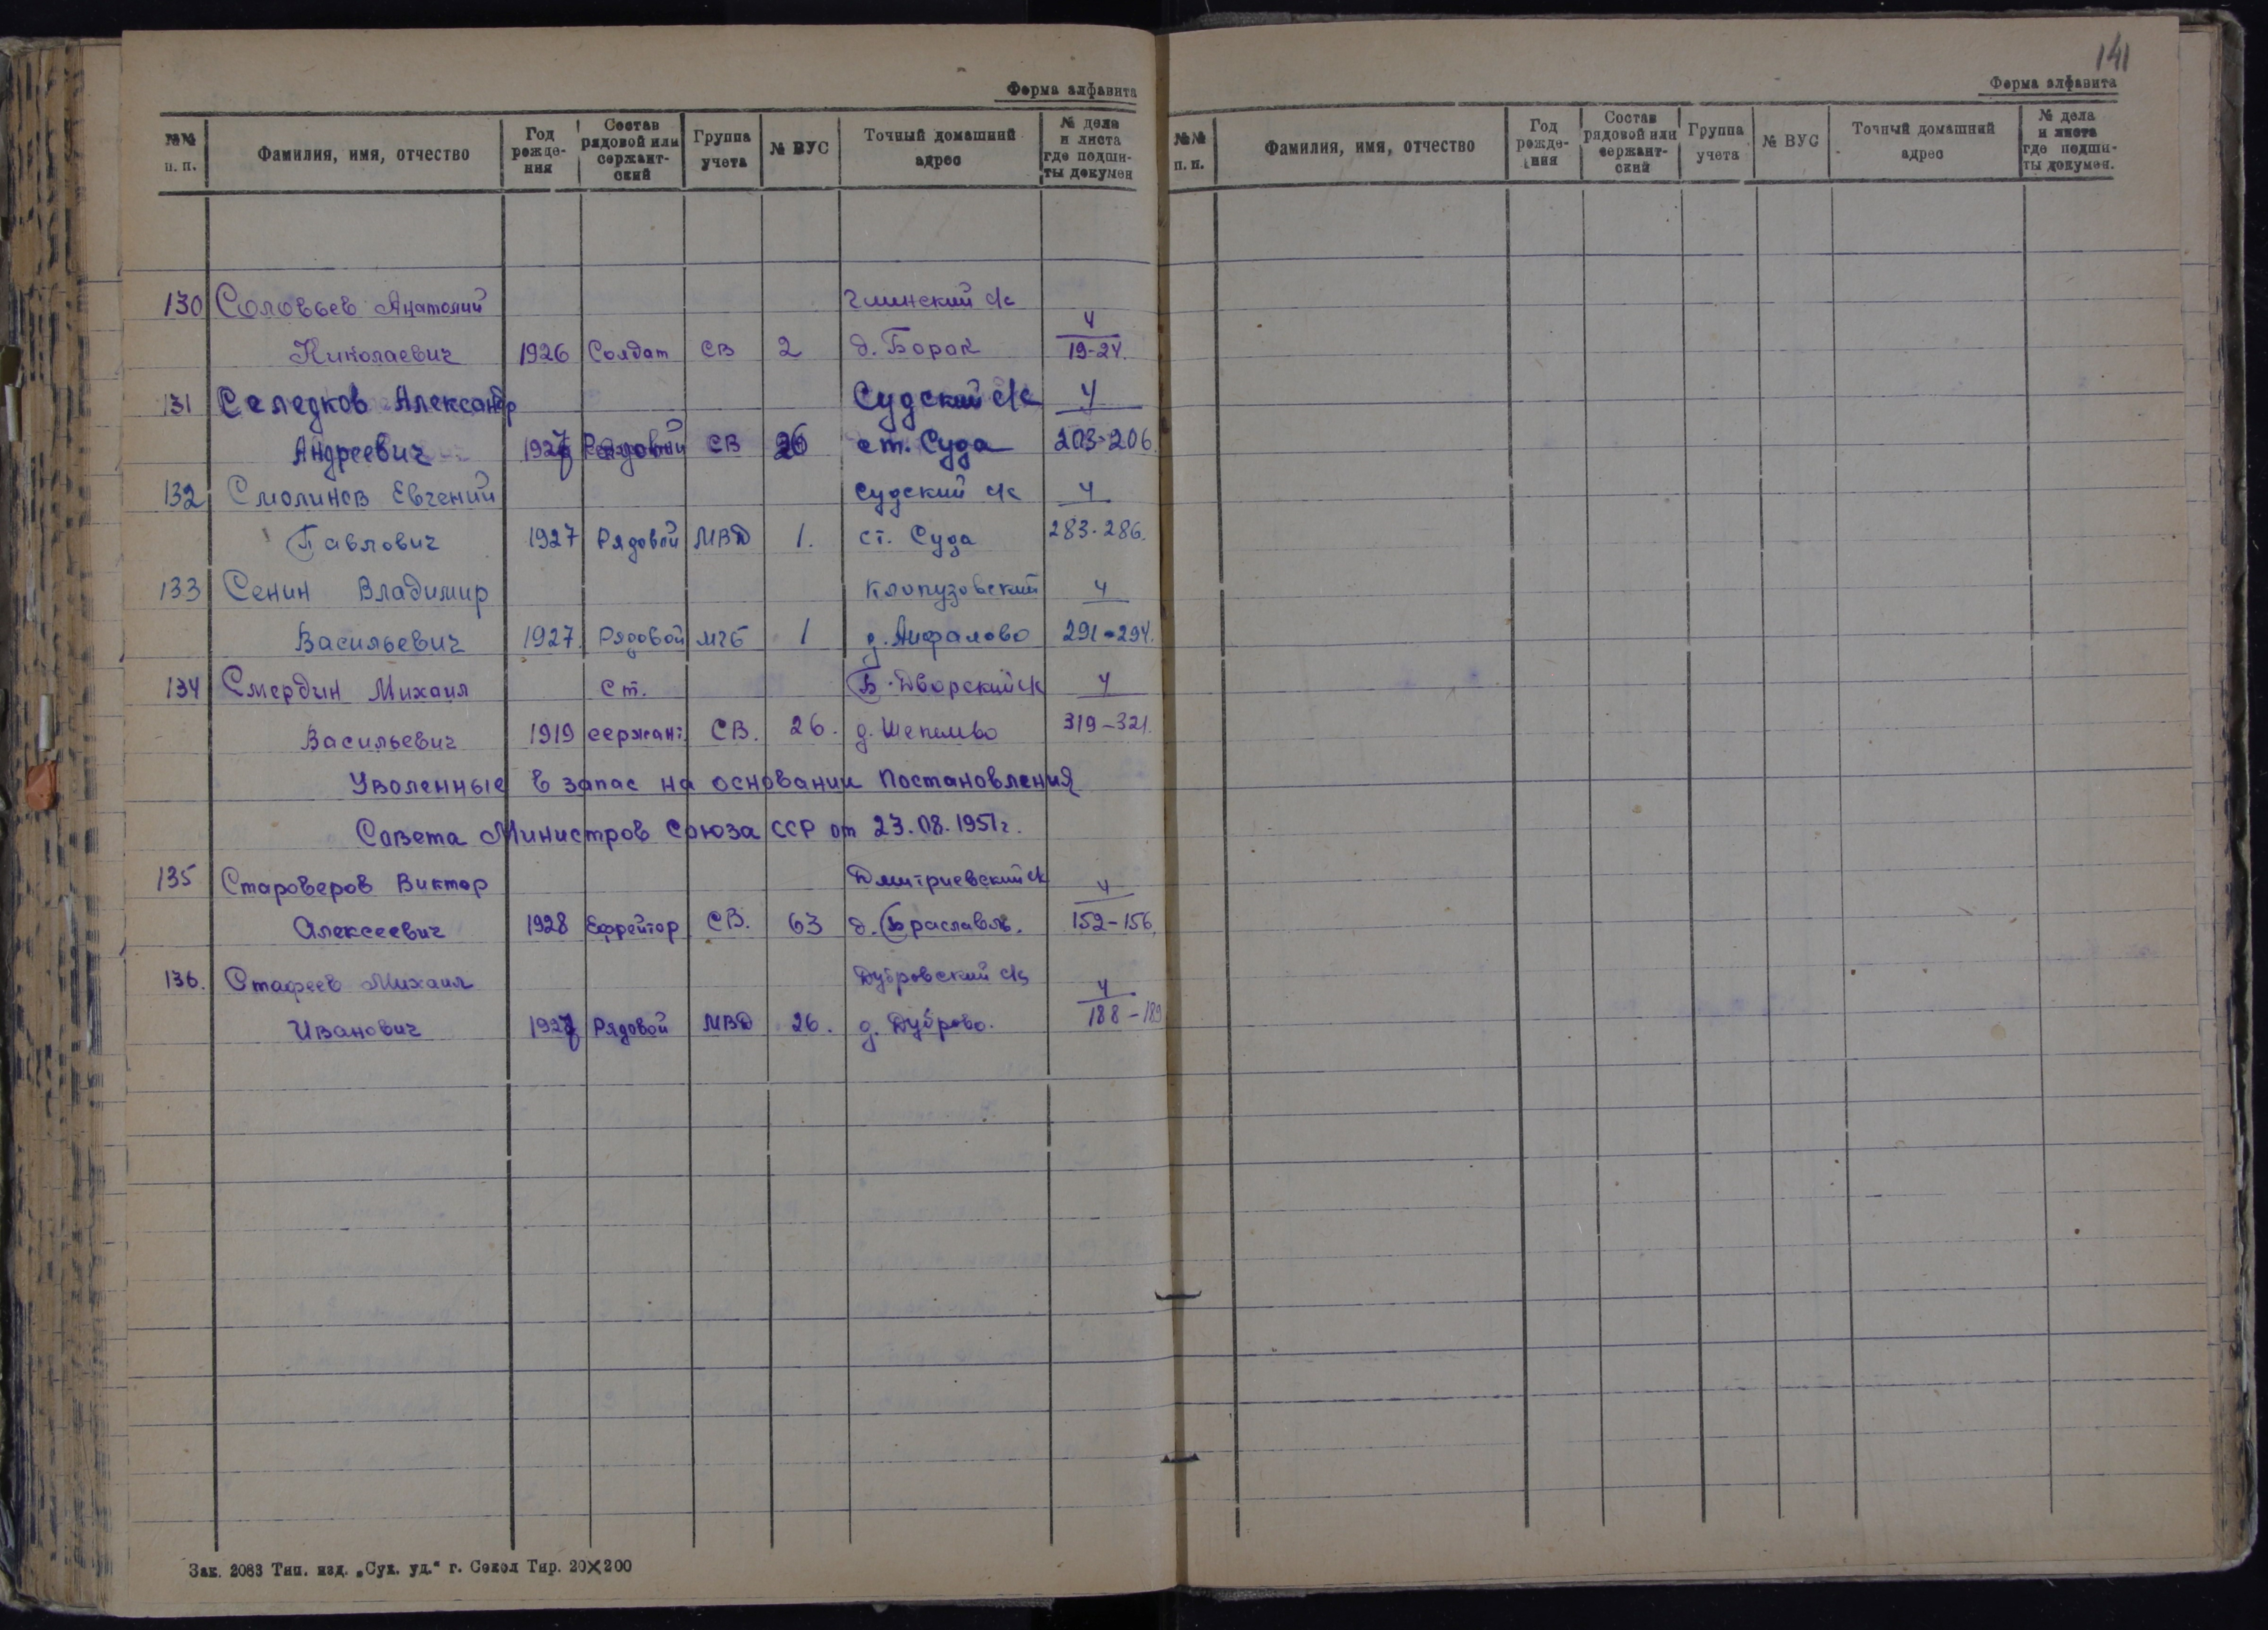 Форма алфавита
№№ п.п. Фамилия, имя, отчество Год рожде-ния Состав рядовой или сержант-ский Группа учета № ВУС Точный домашний адрес № дела и листа где подши-ты докумен
130 Соловьев Анатолий Глинский с/с 4
Николаевич 1926 Солдат СВ 2 д. Борок 19-24.
131 Селедков Александр Судский с/с 4
Андреевич 1927 Рядовой СВ 26 ст. Суда 203-206.
132 Смолинов Евгений Судский с/с 4
Павлович 1927 Рядовой МВД 1. ст. Суда 283-286.
133 Сенин Владимир Клопузовский 4
Васильевич 1927. Рядовой МГБ 1 д. Анфалово 291-294.
134 Смердин Михаил Ст. Б-Дворский с/с 4
Васильевич 1919 сержант СВ. 26. д. Шепелево 319-321.
Уволенные в запас на основании Постановления
Совета Министров Союза ССР от 23.08.1951г.
135 Староверов Виктор Дмитриевский с/с 4
Алексеевич 1928 Ефрейтор СВ. 63 д. 152-156.
136. Стафеев Михаил Дубровский с/с 4
Иванович 1927 Рядовой МВД 26. д. Дуброво. 188-189
Зак. 2083 Тип. изд. „Сух. уд." г. Сокол Тир. 20×200
141
Форма алфавита
№№ п.п. Фамилия, имя, отчество Год рожде-ния Состав рядовой или сержант-ский Группа учета № ВУС Точный домашний адрес № дела и листа где подши-ты докумен.